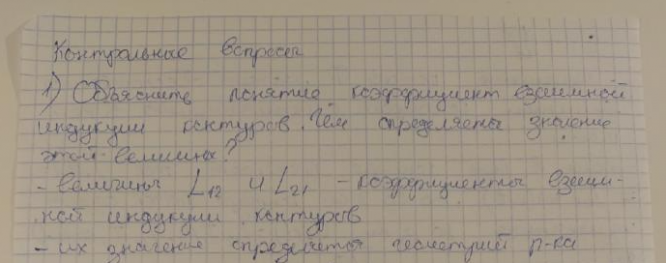 Контрольные вопросы
1) Объясните понятие коэффициент взаимной
индукции контуров. Чем определяется значение
этой величины?
- величины L12 и L21 - коэффициенты взаим-
ной индукции контуров
- их значение определяется геометрией р-ка